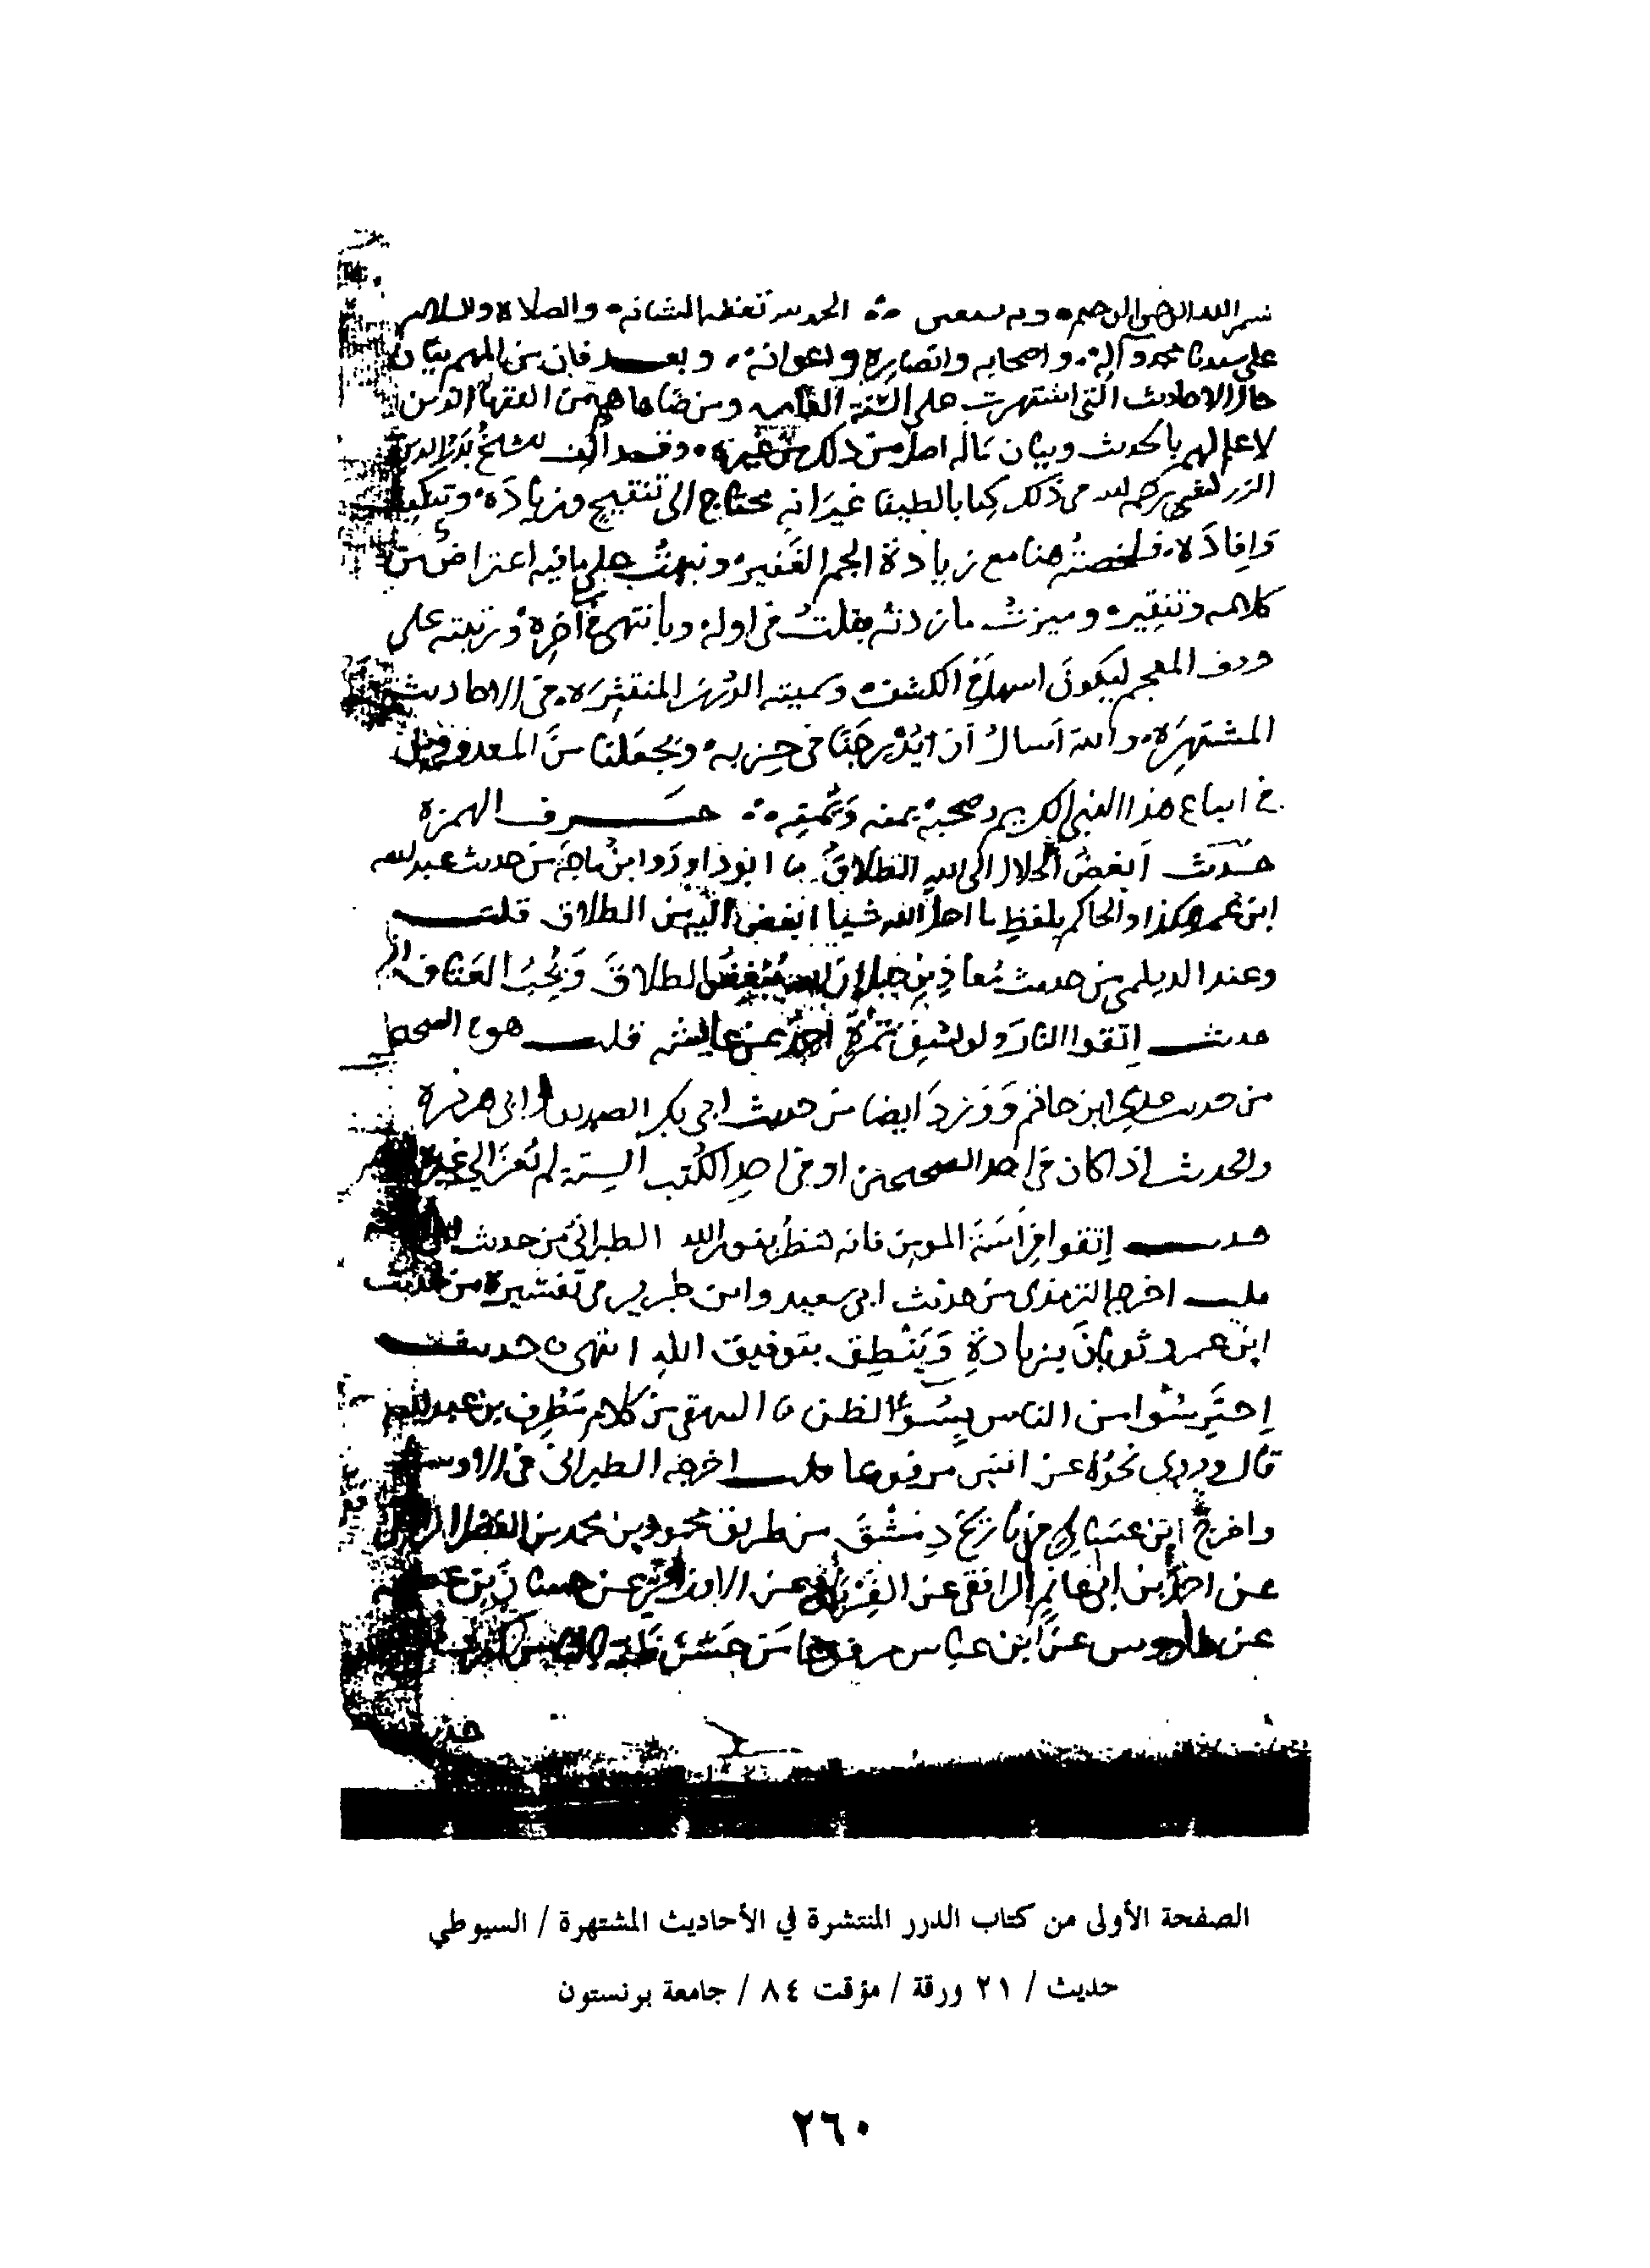 بسم الله الرحمن الرحيم وبه نستعين الحمد لله تعظيما لشانه والصلاة والسلام
على سيدنا محمد وآله واصحابه وانصاره واعوانه وبعد فان من المهم بيان
حال الاحاديث التي اشتهرت على السنة العامه ومن ضاهاهم من الفقها الذين
لا علم لهم بالحديث وبيان ماله اصل من ذلك من غيره وقد الف الشيخ بدر الدين
الزركشي رحمه الله في ذلك كتابا لطيفا غير انه محتاج الى تنقيح وزيادة وتنكيت
وافادة فلخصته هنا مع زيادة الجم الغفير ونبهت على ما فيه اعتراض من
كلامه وتنقير وميزت ما زدته بقلت في اوله وبانتهى في آخره ورتبته على
حروف المعجم ليكون اسهل في الكشف وسميته الدرر المنتثرة في الاحاديث
المشتهرة والله اسال ان يدرجنا في حزبه ويجعلنا من المعدودين
في اتباع هذا النبي الكريم وصحبه بمنه ويمنه حرف الهمزة
حديث ابغض الحلال الى الله الطلاق ابو داود وابن ماجة من حديث عبد الله
ابن عمر هكذا والحاكم بلفظ ما احل الله شيا ابغض اليه من الطلاق قلت
وعند الديلمي من حديث معاذ بن جبل ان الله يبغض الطلاق ويحب العتاق
حديث اتقوا النار ولو بشق تمرة احمد عن عايشه قلت هو في الصحيح
من حديث عدي ابن حاتم وورد ايضا من حديث ابي بكر الصديق وابي هريرة
والحديث اذا كان في احد الصحيحين او في احد الكتب الستة لم نعز الى غيره
حديث اتقوا فراسة المومن فانه ينظر بنور الله الطبراني من حديث
قلت اخرجه الترمذي من حديث ابي سعيد وابن جرير في تفسيره من حديث
ابن عمر وثوبان بزيادة وينطق بتوفيق الله انتهى حديث
احترسوا من الناس بسوء الظن البيهقي من كلام مطرف بن عبد الله
قال وروي نحوه عن انس مرفوعا قلت اخرجه الطبراني في الاوسط
واخرج ابن عساكر في تاريخ دمشق من طريق محمود بن محمد بن الفضل
عن احمد بن ابي غانم الرافقي عن الفريابي عن الاوزاعي عن حسان بن عطية
عن طاووس عن ابن عباس مرفوعا من حسن ظنه بالناس كثرت
الصفحة الأولى من كتاب الدرر المنتشرة في الأحاديث المشتهرة / السيوطي
حديث / ٢١ ورقة / مؤقت ٨٤ / جامعة برنستون
٢٦٠